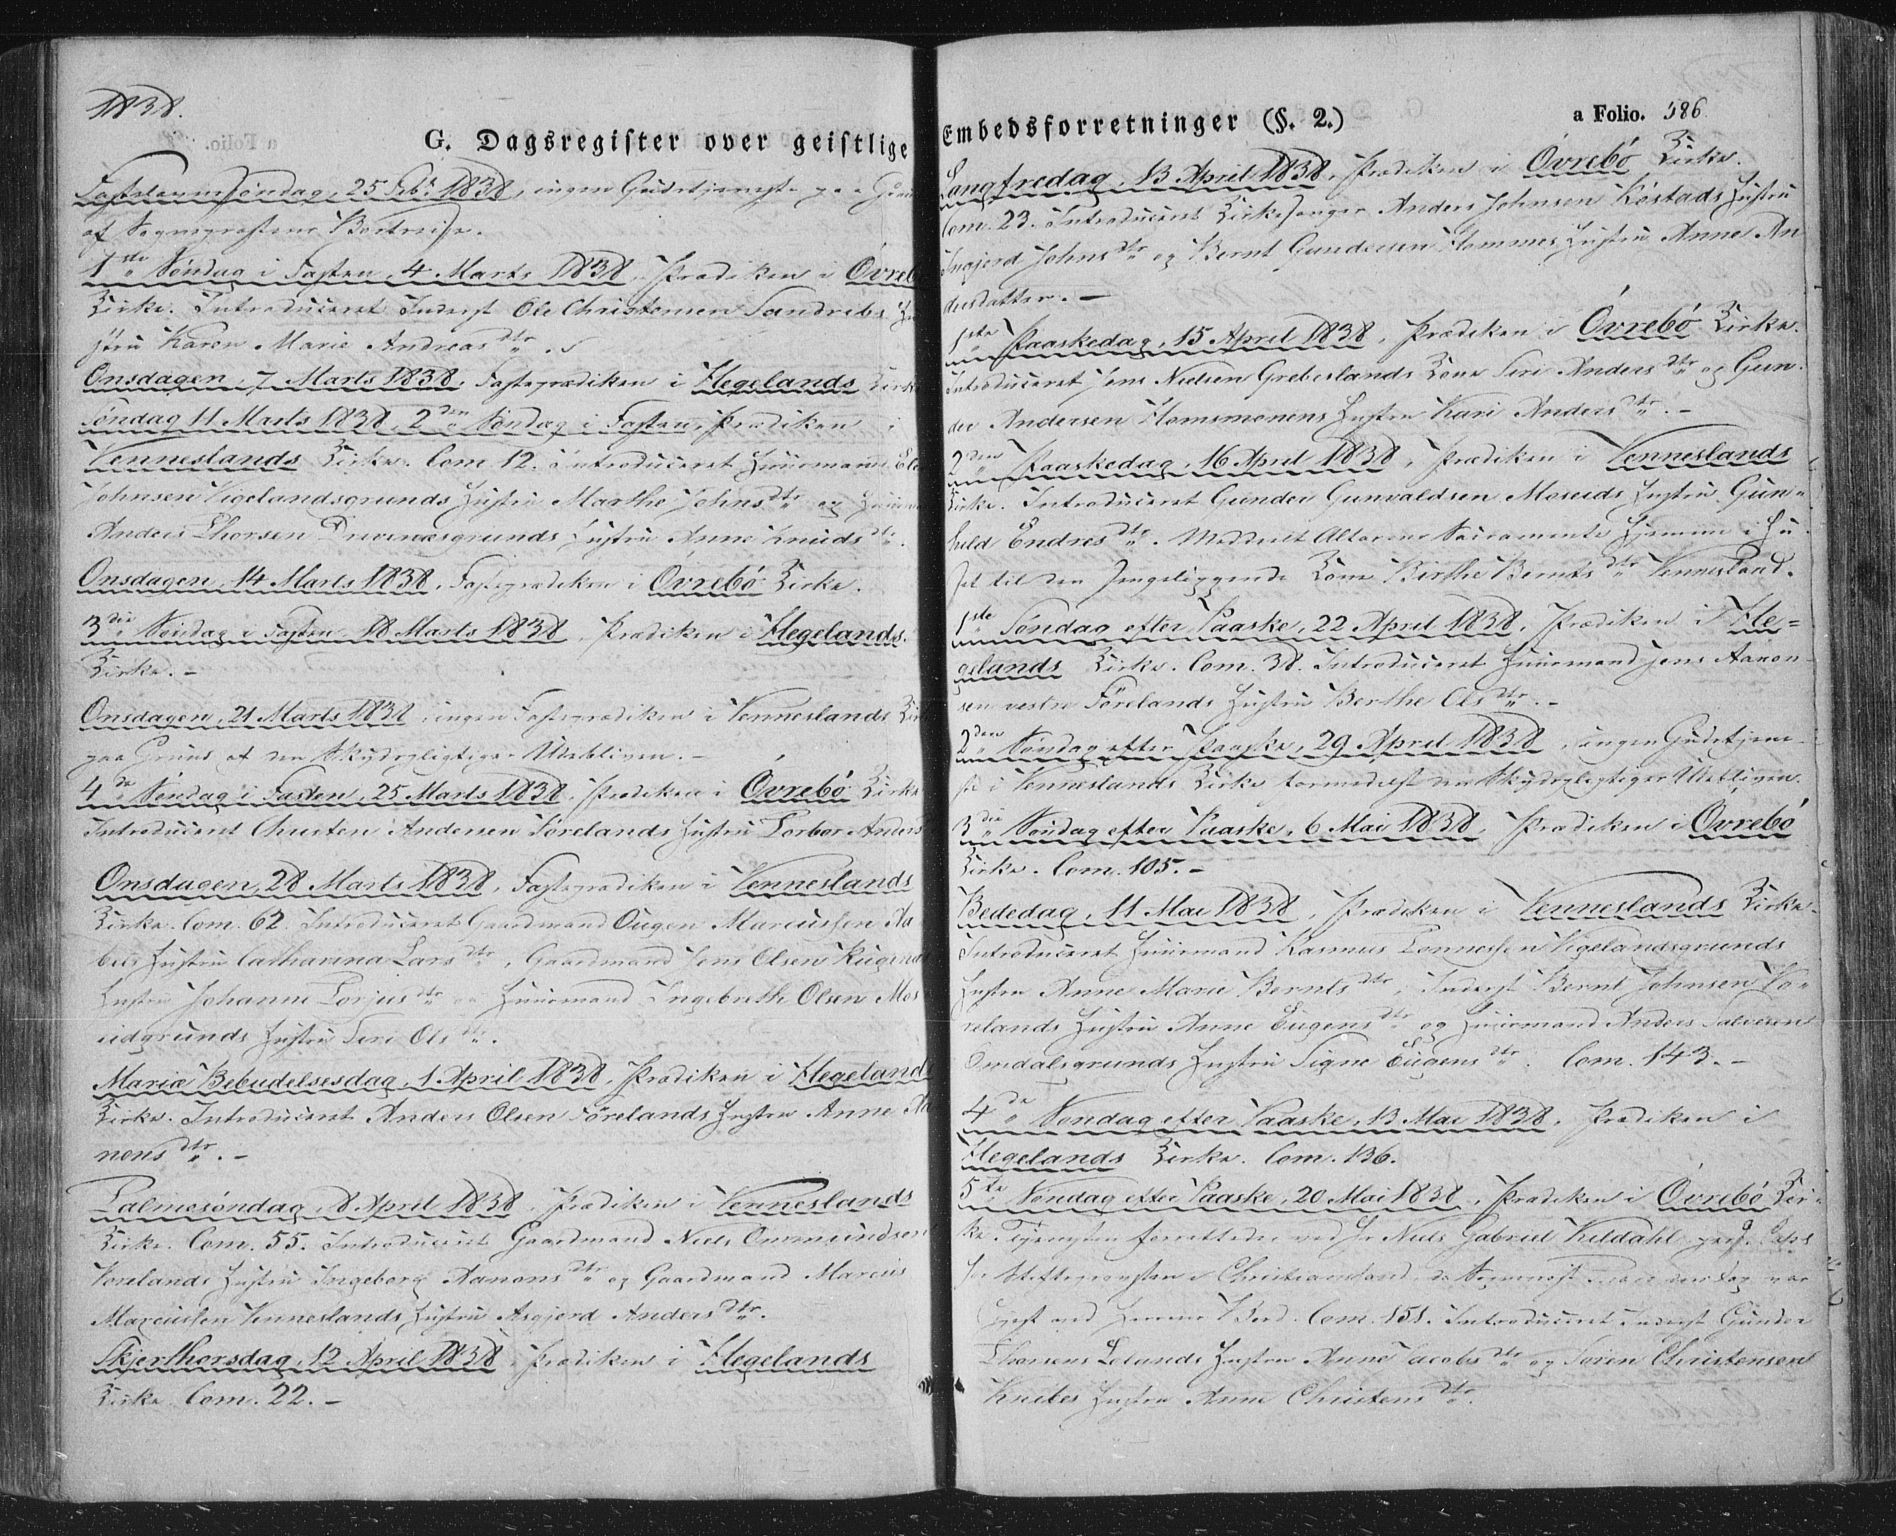 1838.
G. Dagsregister over geistlige
Fastelavnssøndag, 25 Febr 1838, ingen Gudstjeneste paa Grund
af Sognepræstens Bortreise.
1ste Søndag i Fasten, 4 Marts 1838. Prædiken i Øvrebø
Kirke. Introduceret Inderst Ole Christensen Sandrebs Hu
stru Karen Marie Andreasdtr.
Onsdagen, 7 Marts 1838, Fasteprædiken i Hegelands Kirke
Søndag 11 Marts 1838, 2den Søndag i Fasten, Prædiken i
Venneslands Kirke. Com. 12. Introduceret Huusmand
Johnsen Vigelandsgrunds Hustru Marthe Johnsdtr og Huusm
Anders Thorsen Drivenæsgrunds Hustru Anne Knudsdtr.
Onsdagen, 14 Marts 1838, Fasteprædiken i Øvrebø Kirke.
3die Søndag i Fasten 18 Marts 1838, Prædiken i Hegelands
Kirke. –
Onsdagen, 21 Marts 1838, ingen Fasteprædiken i Venneslands Kirke
paa Grund af den Skydspligtiges Udebliven. –
4de Søndag i Fasten, 25 Marts 1838, Prædiken i Øvrebø Kirke
Introduceret Christen Andersen Førelands Hustru Torbor Anders
Onsdagen, 28 Marts 1838, Fasteprædiken i Venneslands
Kirke. Com. 62. Introduceret Gaardmand Ougen Marcussen Aa
bels Hustru Catharina Larsdtr, Gaardmand Jens Olsen Rugens
Hustru Johanne Torjusdtr og Huusmand Ingebreth Olsen Mos
eidgrunds Hustru Siri Olsdtr.
Mariæ Bebudelsesdag, 1 April 1838, Prædiken i Hegelands
Kirke. Introduceret Anders Olsen Førelands Hustru Anne Aa
nensdtr. –
Palmesøndag, 8 April 1838, Prædiken i Venneslands
Kirke. Com. 55. Introduceret Gaardmand Niels Ommundsen
Vorelands Hustru Ingeborg Aanonsdtr og Gaardmand Marcus
Marcussen Venneslands Hustru Asgjerd Andersdtr.
Skjerthorsdag, 12 April 1838, Prædiken i Hegelands
Kirke. Com. 22. –
Embedsforretninger (§. 2.)
a Folio. 386
Langfredag, 13 April 1838, Prædiken i Øvrebø Kirke.
Com. 23. Introduceret Kirkesanger Anders Johnsen Røstads Hustru
Ingjerd Johnsdtr og Bernt Gundersen Hommes Hustru Anne An
dersdatter. –
1ste Paaskedag, 15 April 1838, Prædiken i Øvrebø Kirke.
Introduceret Jens Nielsen Grebeslands Kone Siri Andersdtr og Gun
der Andersen Homsmonens Hustru Kari Andersdtr. –
2den Paaskedag, 16 April 1838, Prædiken i Venneslands
Kirke. Introduceret Gunder Gunvaldsen Moseids Hustru Gun-
hild Endresdtr. Meddeelt Alterens Sacramente hjemme i Hu
set til den sengeliggende Kone Birthe Berntsdtr Vennesland.
1ste Søndag efter Paaske, 22 April 1838, Prædiken i He-
gelands Kirke. Com. 38. Introduceret Huusmand Jens Aanon
sen vestre Førelands Hustru Berthe Olsdtr. –
2den Søndag efter Paaske, 29 April 1838, ingen Gudstjene
ste i Venneslands Kirke formedelst den Skydspligtiges Udebliven.
3die Søndag efter Paaske, 6 Mai 1838, Prædiken i Øvrebø
Kirke. Com. 105. –
Bededag, 11 Mai 1838, Prædiken i Venneslands Kirke.
Introduceret Huusmand Rasmus Tønnessen Vigelandsgrunds
Hustru Anne Marie Berntsdtr, Inderst Bernt Johnsen Vo-
relands Hustru Anne Eugensdtr og Huusmand Anders Salvesen
Omdalsgrunds Hustru Signe Eugensdtr. Com. 143. –
4de Søndag efter Paaske, 13 Mai 1838, Prædiken i
Hegelands Kirke. Com. 136.
5te Søndag efter Paaske, 20 Mai 1838, Prædiken i Øvrebø Kir-
ke. Tjenesten forrettedes ved Hr Niels Gabriel Kildahl, pers. Cap.
hos Stiftsprovsten i Christianssand, da Sognepræsten denne Dag var
Com. 151. Introduceret Inderst Gunder
Thorsens Lølands Hustru Anne Jacobsdtr og Søren Christensens
Knibes Hustru Anne Christensdtr.